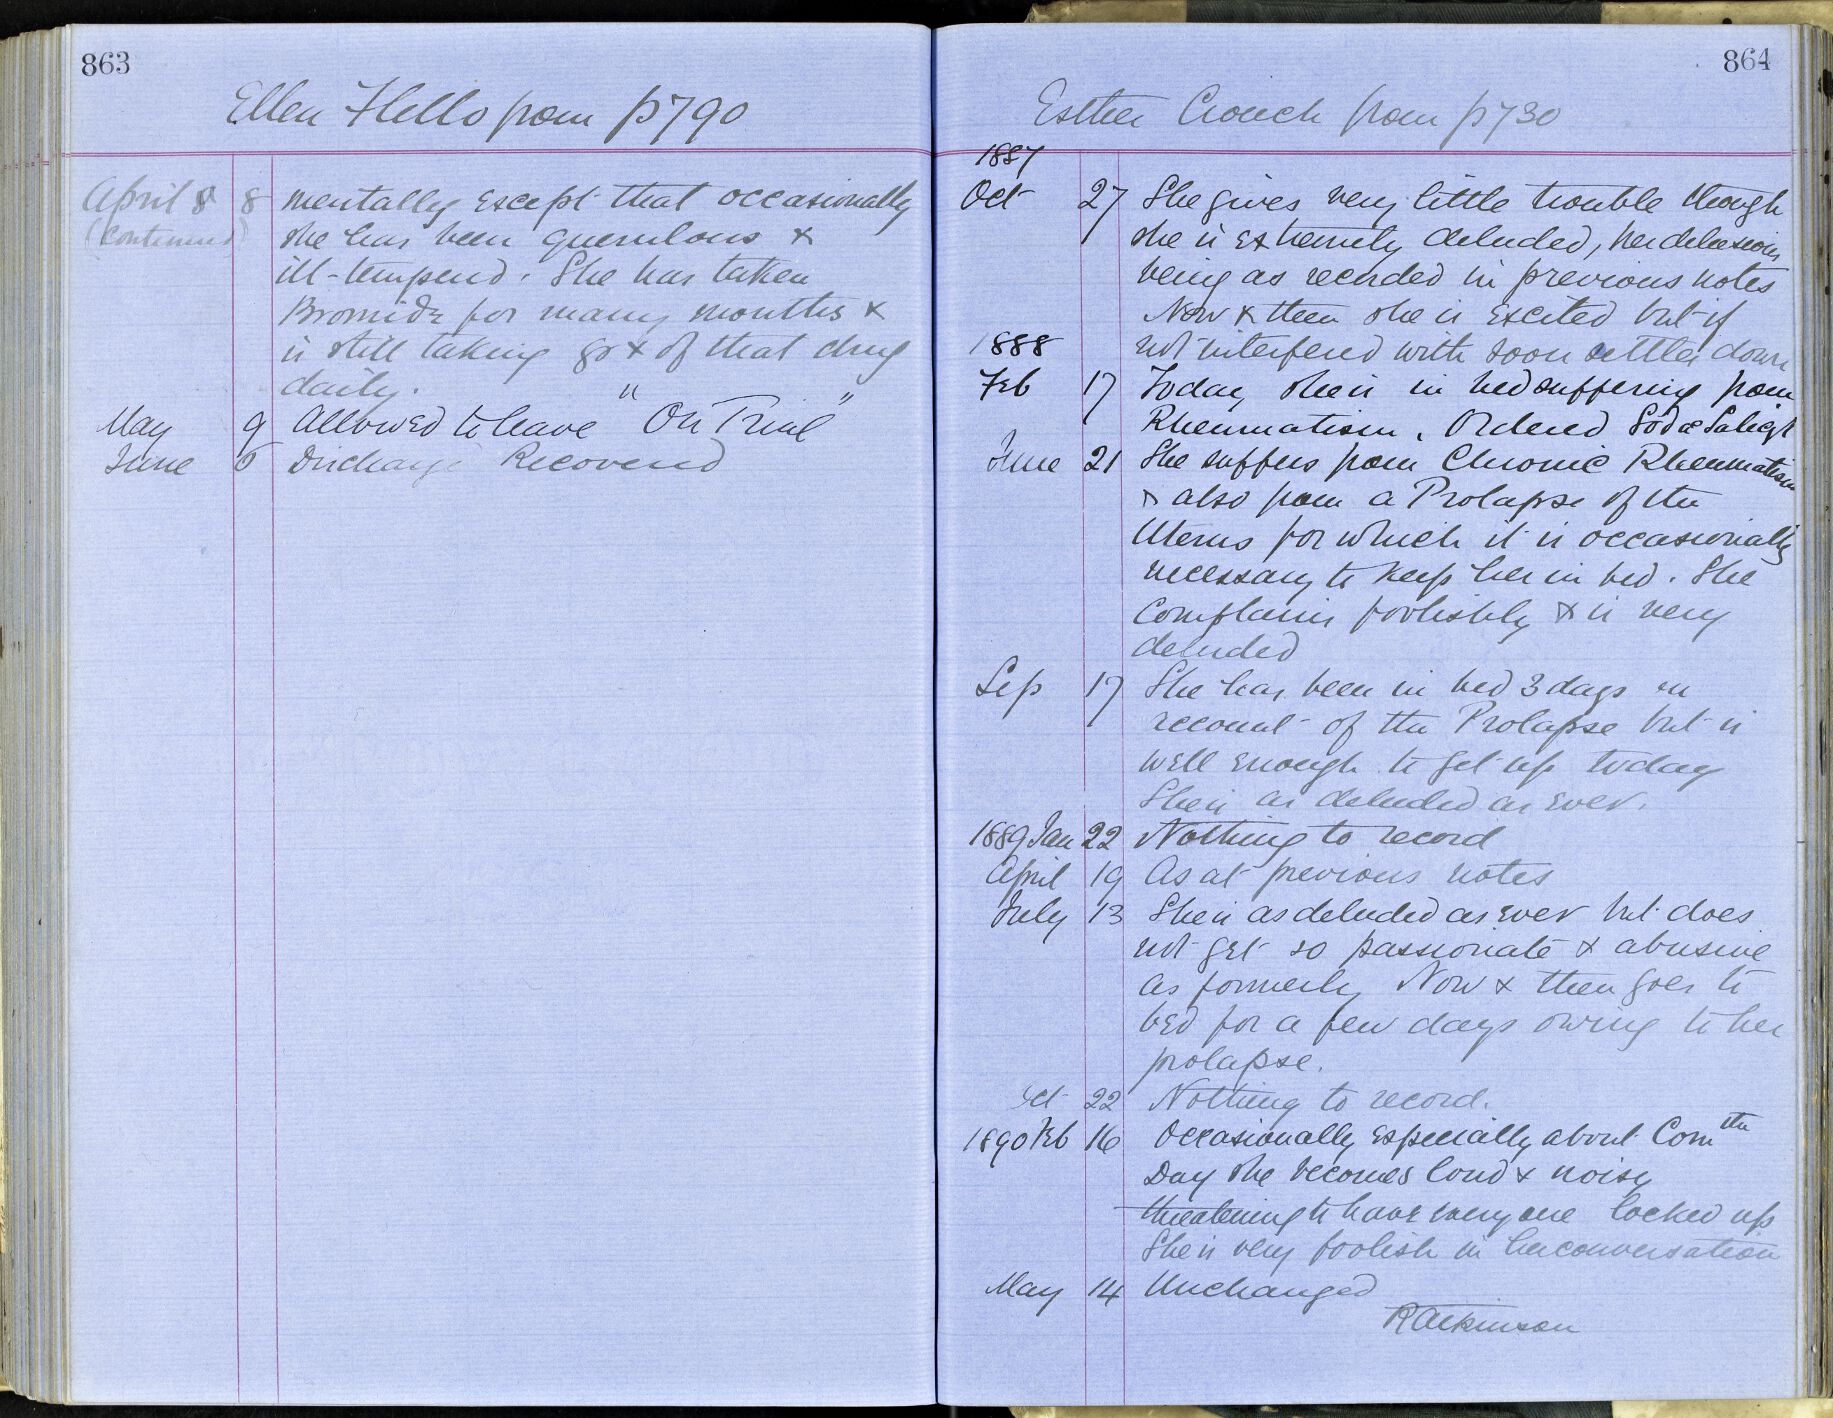 863
Ellen Hello from p790
April 8 8 mentally except that occasionally
(continued) she has been querulous &
ill-tempered. She has taken
Bromide for many months &
is still taking grx of that drug
daily.
May 9 Allowed to leave "On Trial"
June 6 Discharged Recovered
864
Esther Crouch from p730
1887
Oct 27 She gives very little trouble though
she is extremely deluded, her delusions
being as recorded in previous notes
Now & then she is excited but if
1888 not interfered with soon settles down
Feb 17 Today she is in bed suffering from
Rheumatism. Ordered Sodæ Salicyl
June 21 She suffers from Chronic Rheumatism
& also from a Prolapse of the
Uterus for which it is occasionally
necessary to keep her in bed. She
complains foolishly & is very
deluded
Sep 17 She has been in bed 3 days on
account of the Prolapse but is
well enough to get up today
She is as deluded as ever.
1889 Jan 22 Nothing to record
April 19 As at previous notes
July 13 She is as deluded as ever but does
not get so passionate & abusive
as formerly Now & then goes to
bed for a few days owing to her
prolapse.
Oct 22 Nothing to record.
1890 Feb 16 Occasionally especially about Comtee
Day she becomes loud & noisy
threatening to have everyone locked up
She is very foolish in her conversation
May 14 Unchanged
RAtkinson